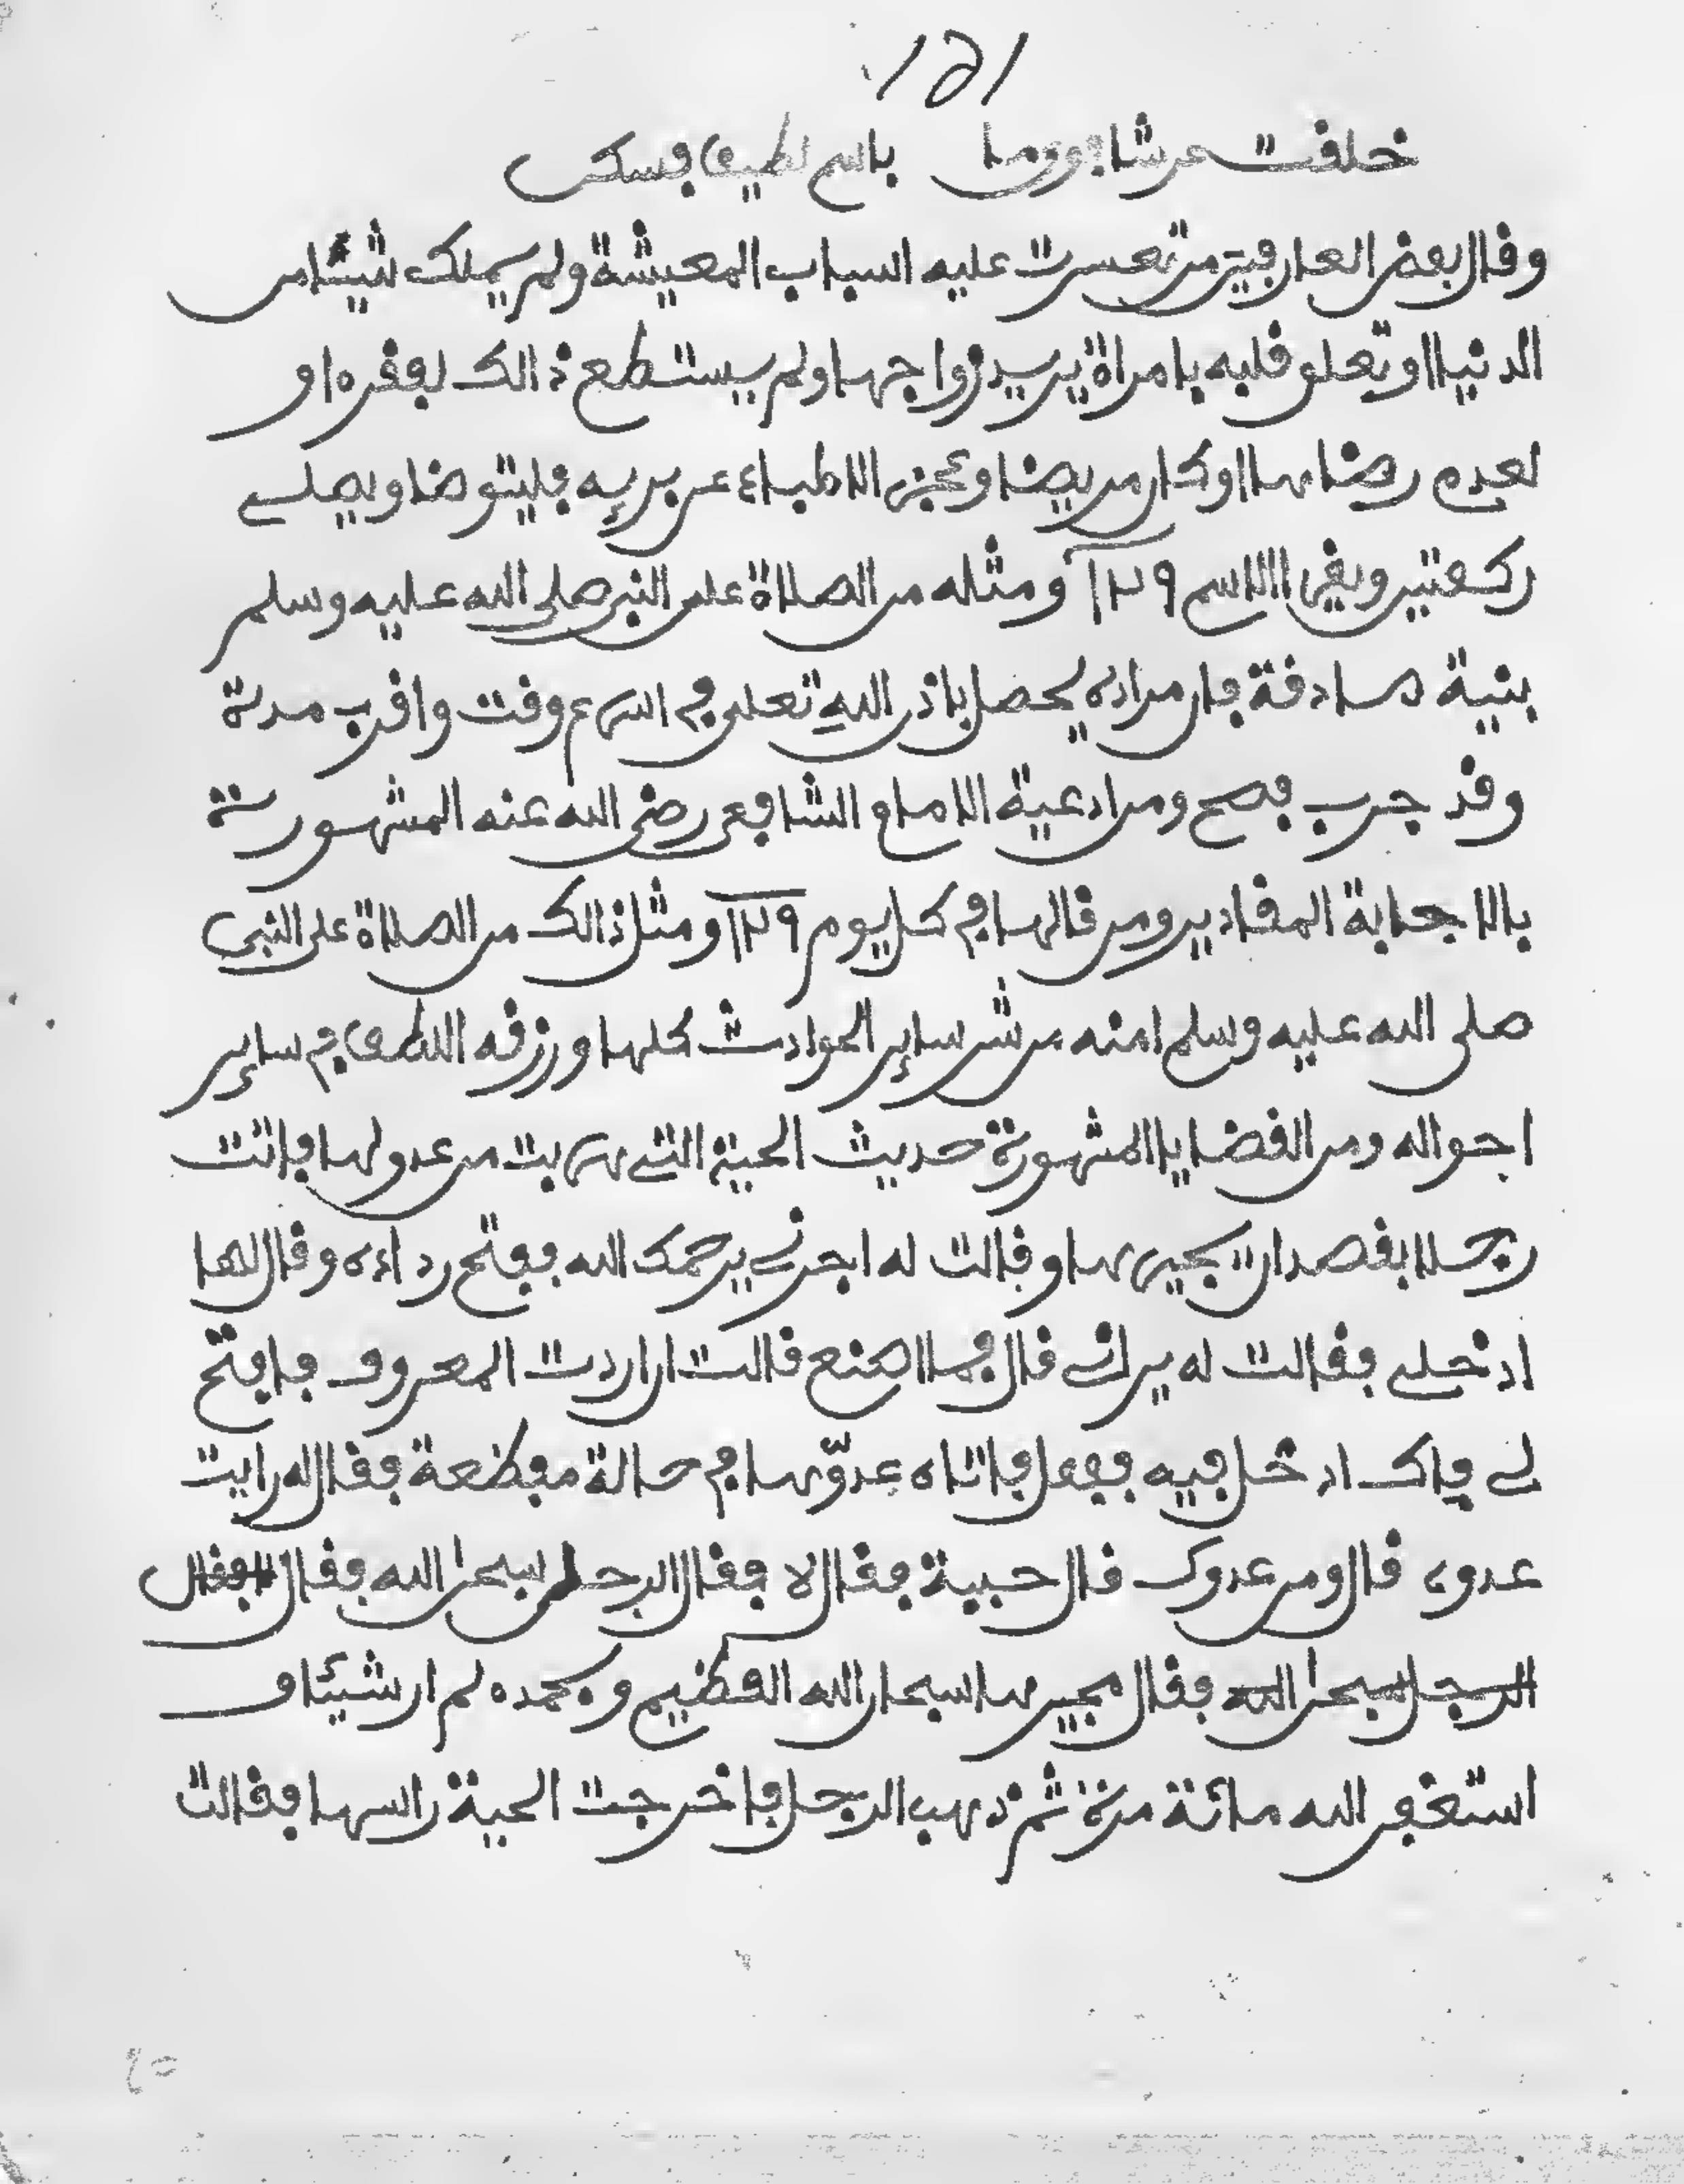 151
خلفت عرشا باسم لطيف فسكن
وقال بعض العارفين من تعسرت عليه اسباب المعيشة ولم يملك شيئا من
الدنيا او تعلق قلبه بامراة يريد زواجها ولم يستطع ذالك لفقره او
لعدم رضاها او كان مريضا وعجز الاطباء عن بريه فليتوضا ويصلي
ركعتين ويقرا الاسم ١٢٩ ومثله من الصلاة على النبي صلى الله عليه وسلم
بنية صادفة فان مراده يحصل باذن الله تعلى في اسرع وقت واقرب مدة
وقد جرب فصح ومن ادعية الامام الشافعي رضي الله عنه المشهورة
بالاجابة المفادير ومن قالها في كل يوم ١٢٩ ومثل ذالك من الصلاة على النبي
صلى الله عليه وسلم امنه من شر ساير الحوادث كلها ورزقه اللطف في ساير
احواله ومن القضايا المشهورة حديث الحية التي هربت من عدو لها فاتت
رجلا بقصد ان يجيرها وقالت له اجرني يرحمك الله ففتح رداءه وقال لها
ادخلي فقالت له يراني قال فما اصنع قالت ان اردت المعروف فافتح
لي فاك ادخل فيه ففعل فاتاه عدوها في حالة مفظعة فقال له رايت
عدوي قال ومن عدوك قال حية فقال لا فقال الرجل سبحن الله فقال فقال
الرجل سبحن الله فقال مجيرها سبحان الله العظيم وبحمده لم ار شيئا و
استغفر الله مائة مرة ثم ذهب الرجل فاخرجت الحية راسها فقالت